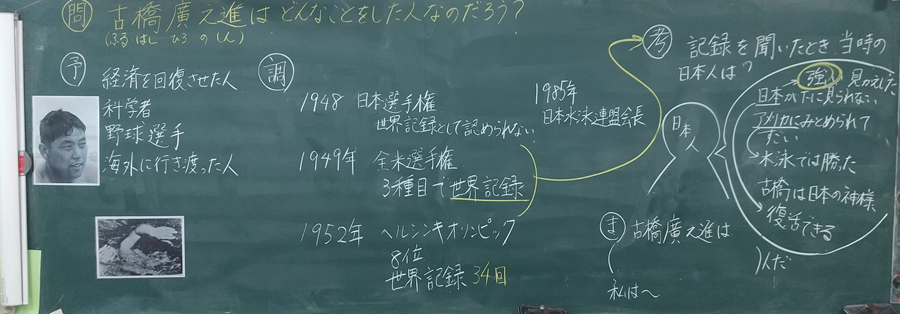 問 古橋廣之進はどんなことをした人なのだろう?
(ふる はし ひろ の しん)
予 経済を回復させた人
科学者
野球選手
海外に行き渡った人
調
1948 日本選手権
世界記録として認められない
1949年 全米選手権
3種目で世界記録
1952年 ヘルシンキオリンピック
8位
世界記録 34回
1985年
日本水泳連盟会長
考 記録を聞いたとき当時の
日本人は?
日本人
強い 見かえした
日本が下に見られない
アメリカにみとめられて
すごい
水泳では勝った
古橋は日本の神様
復活できる
ま 古橋廣之進は
人だ
私は〜